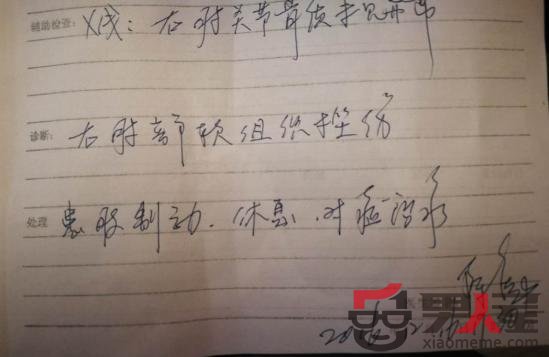 辅助检查: X线: 右肘关节骨质未见异常
诊断: 右肘部软组织挫伤
处理 患肢制动. 休息. 对症治疗
男人窝
xiaomeme.com